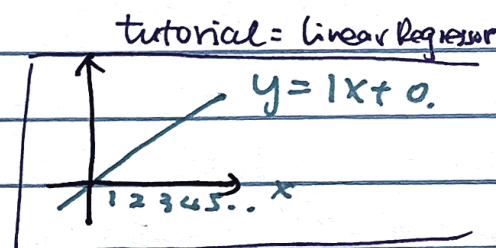 tutorial = Linear Regressor
y = 1x + 0.
1 2 3 4 5 . . x